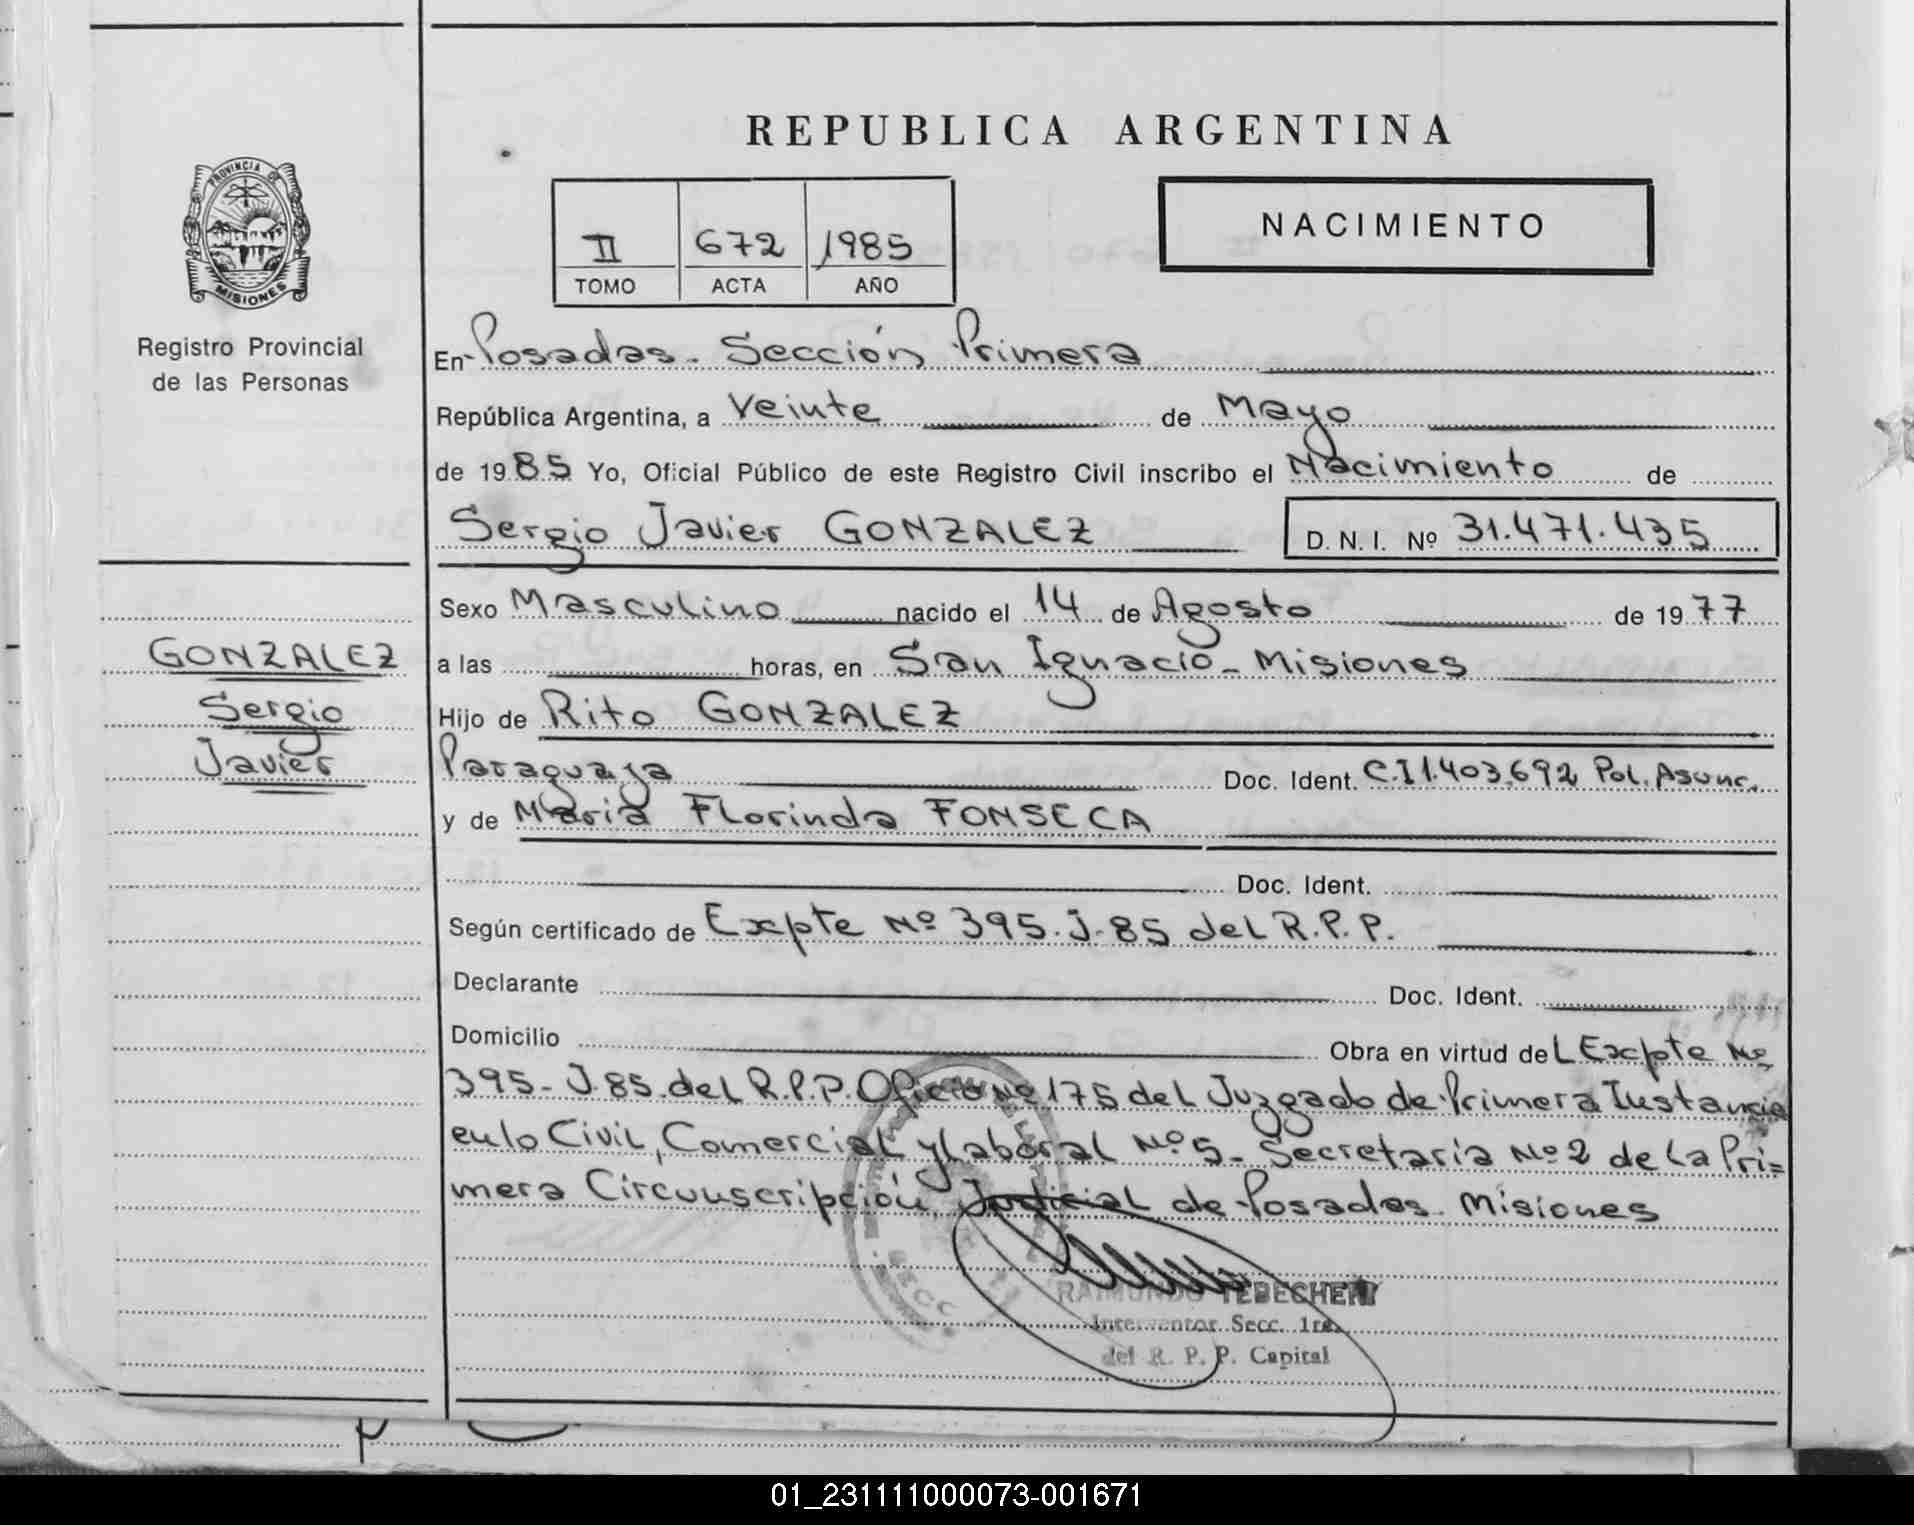 REPUBLICA ARGENTINA
PROVINCIA DE
MISIONES
Registro Provincial
de las Personas
NACIMIENTO
II 672 1985
TOMO ACTA AÑO
En Posadas. Sección Primera
República Argentina, a Veinte de Mayo
de 1985 Yo, Oficial Público de este Registro Civil inscribo el Nacimiento de
Sergio Javier GONZALEZ D. N. I. Nº 31.471.435
Sexo Masculino nacido el 14 de Agosto de 1977
GONZALEZ
Sergio
Javier
a las horas, en San Ignacio - Misiones
Hijo de Rito GONZALEZ
Paraguaya Doc. Ident. C.I 1.403.692 Pol. Asunc.
y de Maria Florinda FONSECA
Doc. Ident.
Según certificado de Expte Nº 395. J. 85 del R. P. P.
Declarante Doc. Ident.
Domicilio Obra en virtud del Expte Nº
395 - J. 85. del R. P. P. Oficio Nº 175 del Juzgado de Primera Instancia
en lo Civil, Comercial y Laboral Nº 5 - Secretaría Nº 2 de la Pri=
mera Circunscripción Judicial de Posadas. Misiones
RAIMUNDO
Interventor Secc. 1ra.
del R. P. P. Capital
01_231111000073-001671